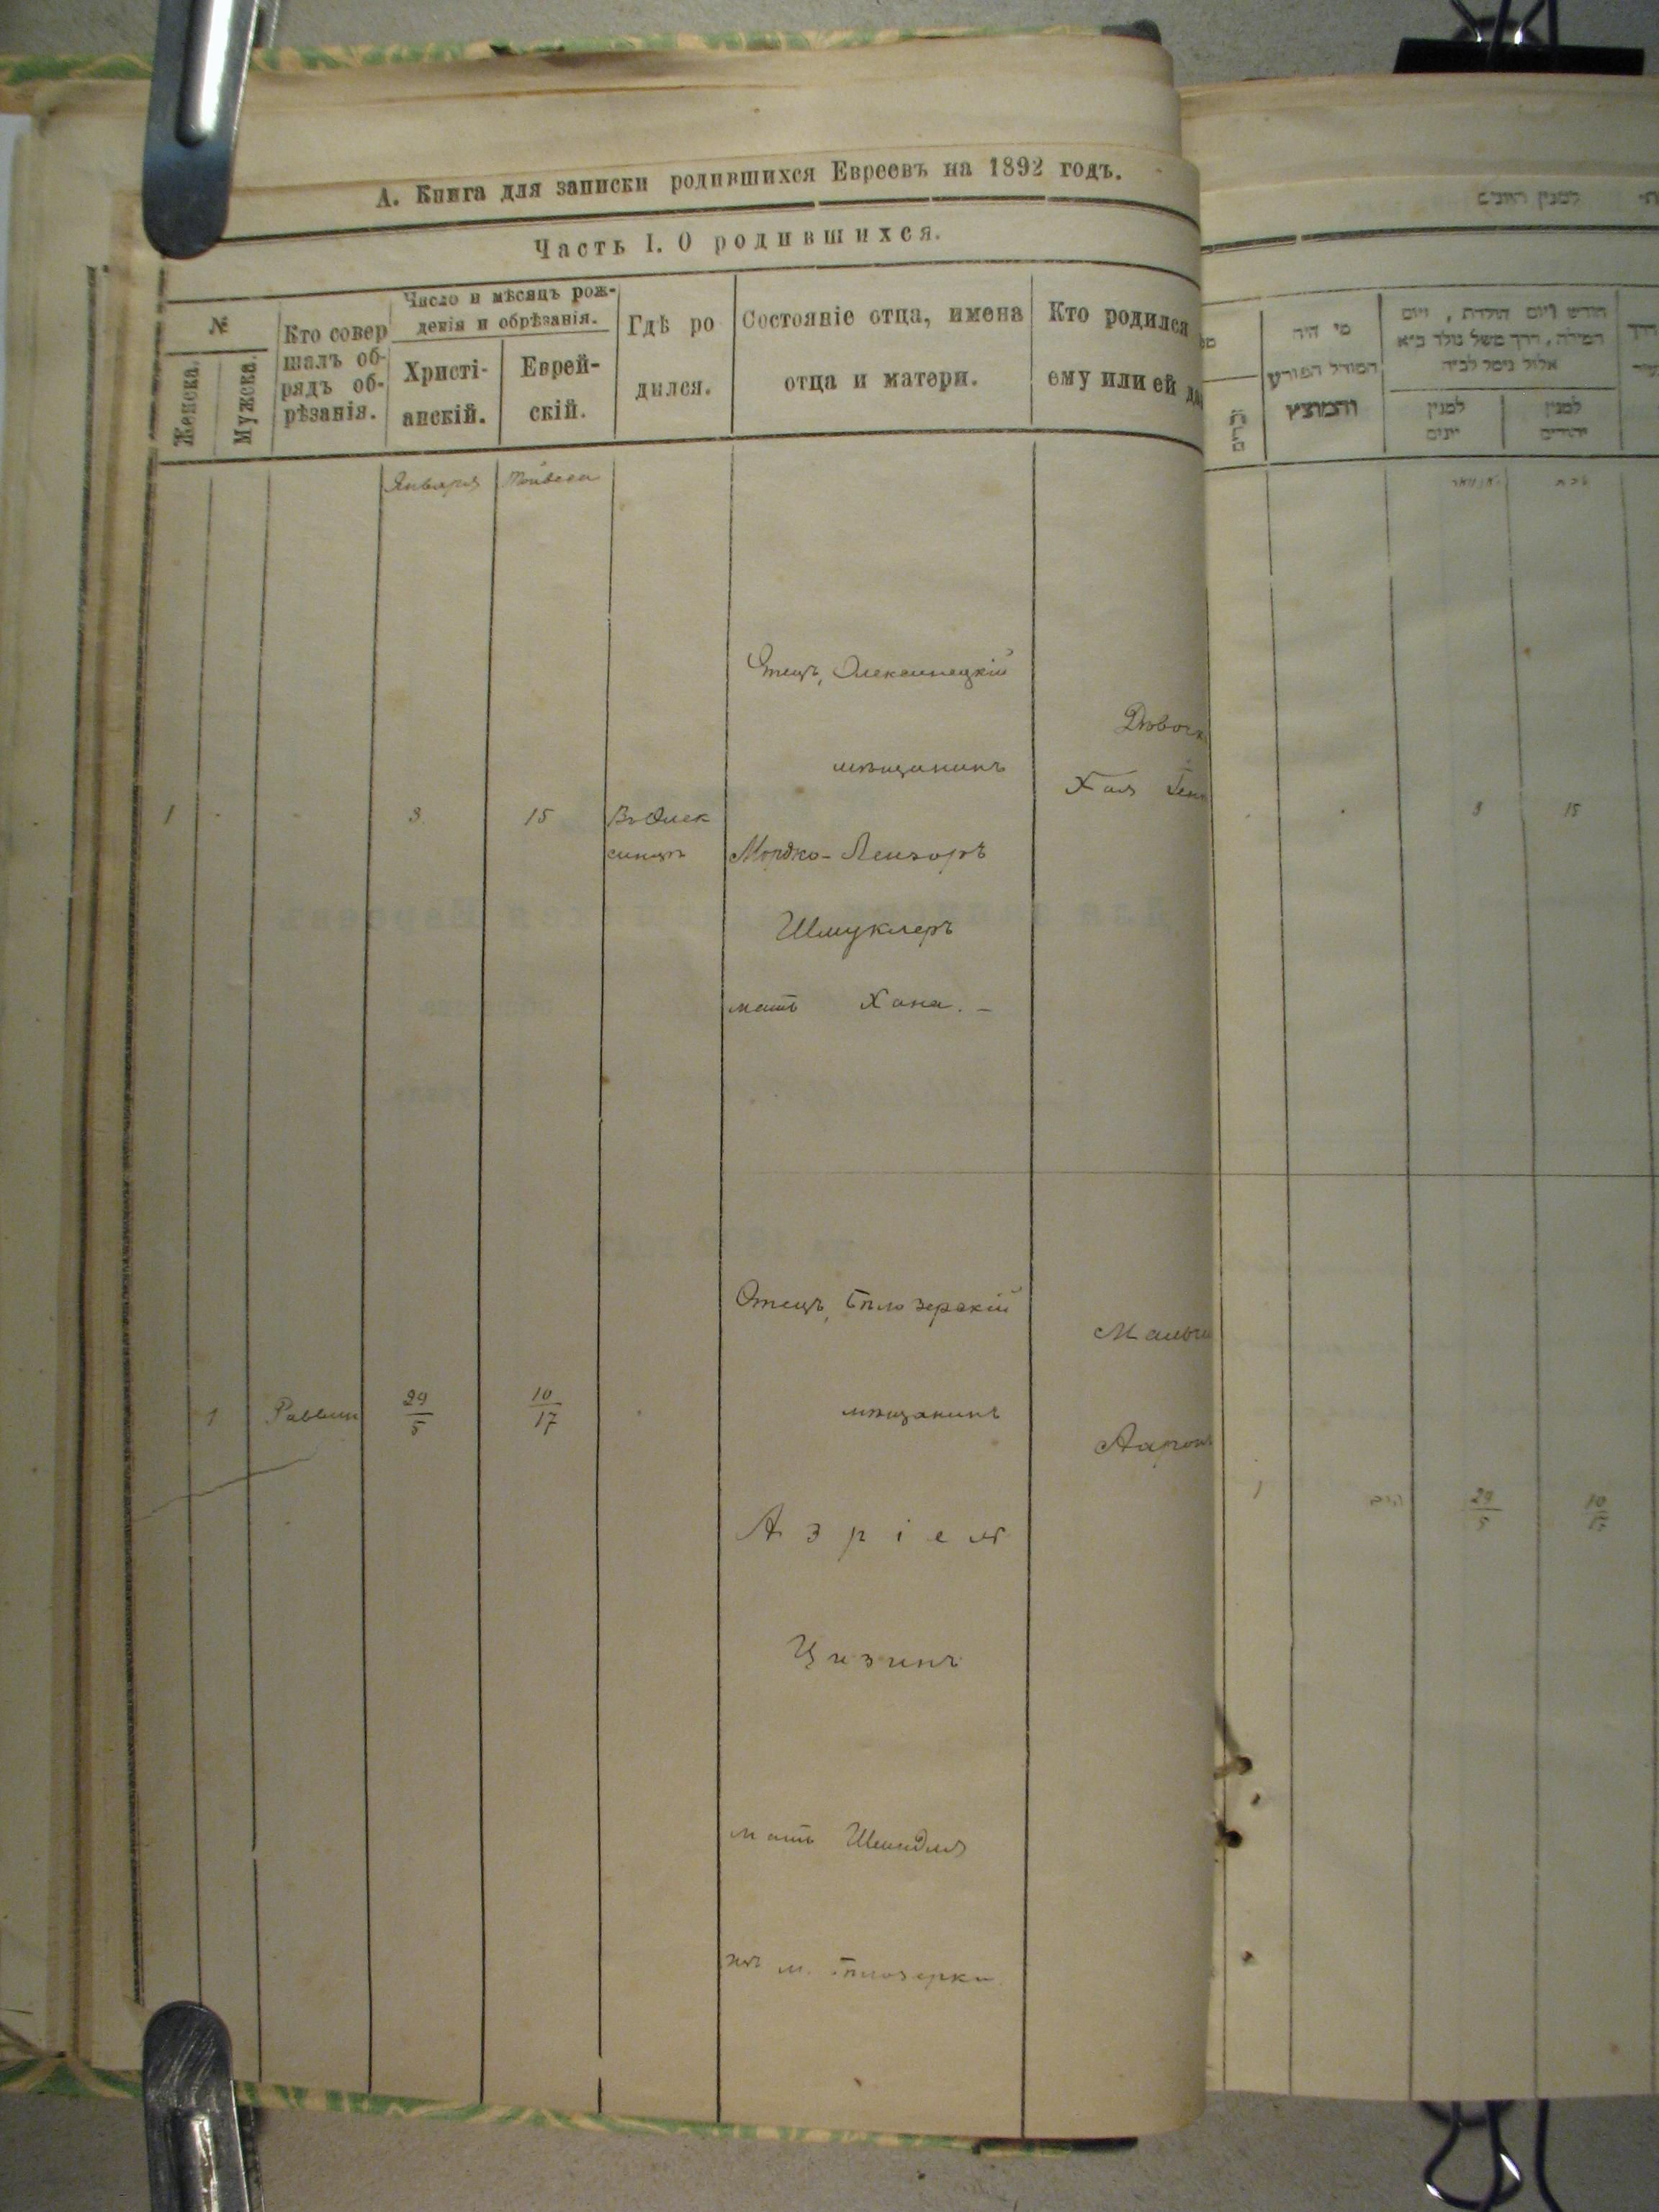 А. Книга для записки родившихся Евреевъ на 1892 годъ.
Часть I. О родившихся.
№
Женска.
Мужска.
Кто совер
шалъ об-
рядъ об-
рѣзанія.
Число и мѣсяцъ рож-
денія и обрѣзанія.
Христі-
анскій.
Еврей-
скій.
Гдѣ ро
дился.
Состояніе отца, имена
отца и матери.
Кто родился
ему или ей да
Января
Тейвеса
Отецъ, Олексинецкій
мѣщанинъ
Мордко-Лейзоръ
Шмуклеръ
мать Хана. –
1
3
15
Въ Олек
синцѣ
Дѣвочк
Хая
Отецъ, Бѣлозерскій
мѣщанинъ
Азріел
Цизинъ
мать Шейндля
изъ м. Бѣлозерки.
1
Раввин
29
5
10
17
Мальчи
Аарон
למנין היונים
מי היה
המוהל הפורע
והמוצץ
חודש ויום הולדת, ויום
המילה, דרך משל נולד כ״א
אלול ניסל לכ״ה
למנין
יונים
למנין
יהודים
3
15
1
הרב
29
5
10
17